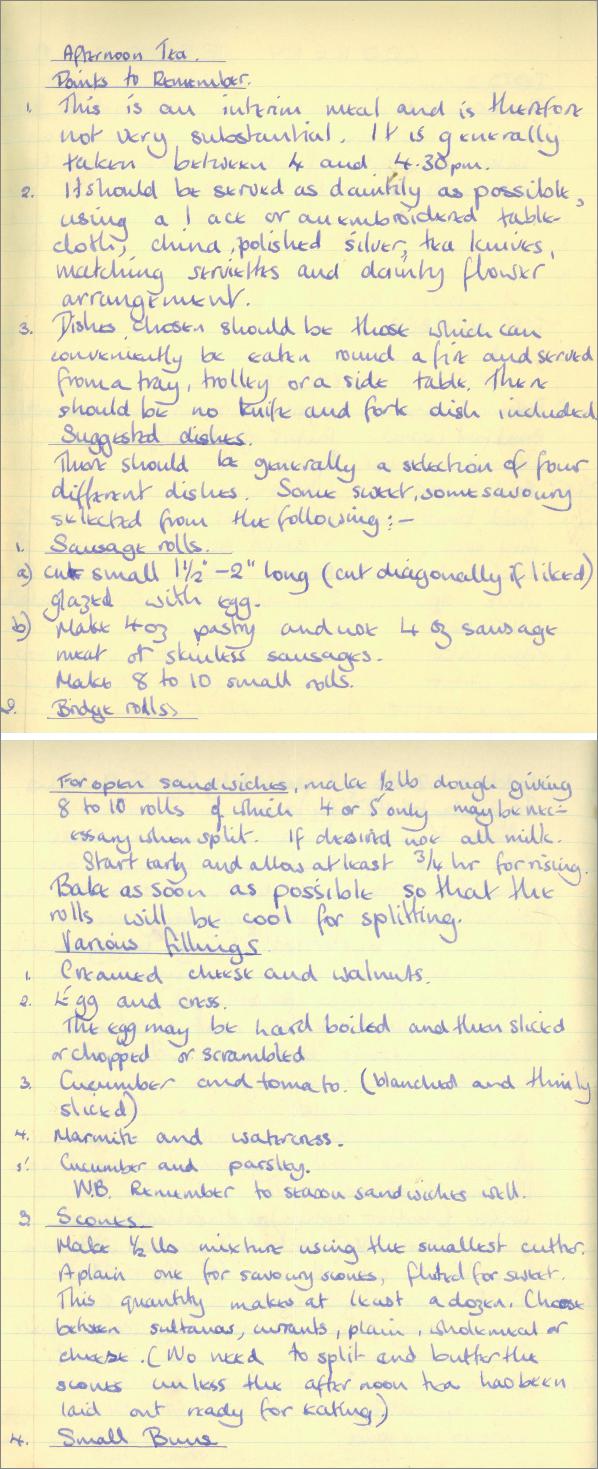 Afternoon Tea.
Points to Remember.
1. This is an interim meal and is therefore
not very substantial. It is generally
taken between 4 and 4.30pm.
2. It should be served as daintily as possible,
using a lace or an embroidered table-
cloth, china, polished silver, tea knives,
matching serviettes and dainty flower
arrangement.
3. Dishes chosen should be those which can
conveniently be eaten round a fire and served
from a tray, trolley or a side table. There
should be no knife and fork dish included
Suggested dishes.
There should be generally a selection of four
different dishes. Some sweet, some savoury
selected from the following:-
1. Sausage rolls.
a) cut small 1½" - 2" long (cut diagonally if liked)
glazed with egg.
b) Make 4oz pastry and use 4 oz sausage
meat or skinless sausages.
Make 8 to 10 small rolls.
2. Bridge rolls
For open sandwiches, make ½lb dough giving
8 to 10 rolls of which 4 or 5 only may be nec=
essary when split. If desired use all milk.
Start early and allow at least ¾ hr for rising.
Bake as soon as possible so that the
rolls will be cool for splitting.
Various fillings
1. Creamed cheese and walnuts.
2. Egg and cress.
The egg may be hard boiled and then sliced
or chopped or scrambled
3. Cucumber and tomato. (blanched and thinly
sliced)
4. Marmite and watercress.
5. Cucumber and parsley.
N.B. Remember to season sandwiches well.
3. Scones.
Make ½ lb mixture using the smallest cutter.
A plain one for savoury scones, fluted for sweet.
This quantity makes at least a dozen. Choose
between sultanas, currants, plain, wholemeal or
cheese. (No need to split and butter the
scones unless the afternoon tea has been
laid out ready for eating)
4. Small Buns